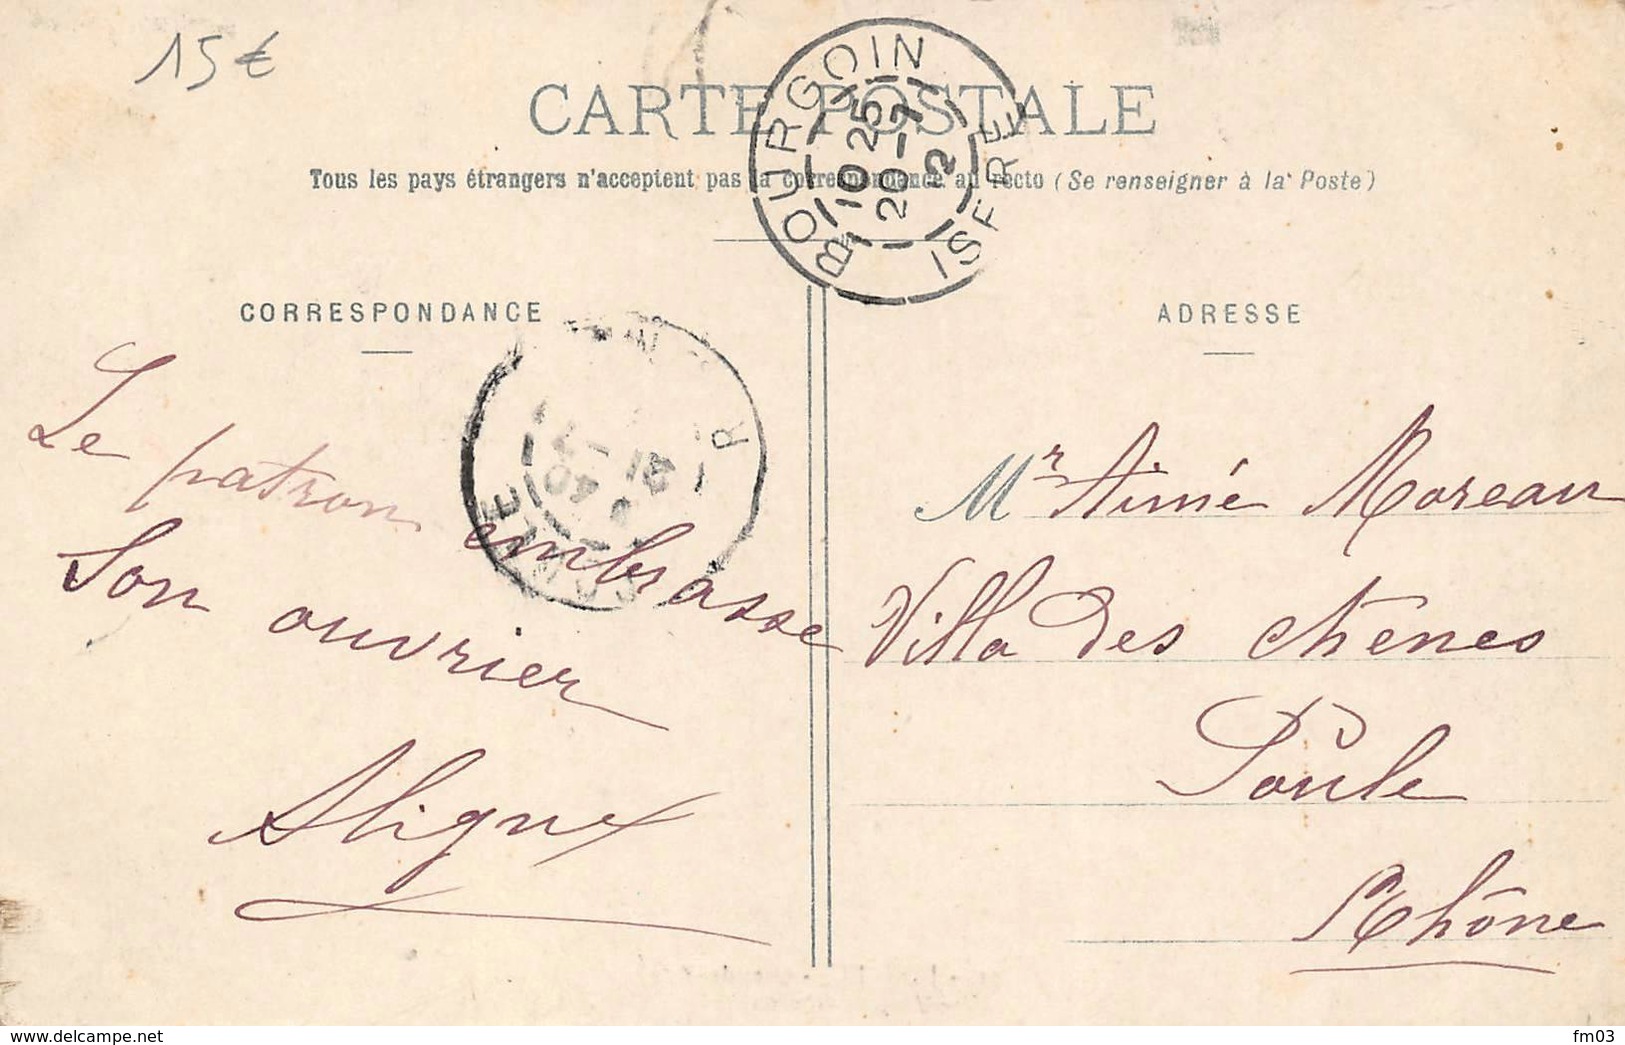 15€
CARTE POSTALE
Tous les pays étrangers n'acceptent pas la correspondance au recto (Se renseigner à la Poste)
BOURGOIN
10 25
20-7
ISERE
CORRESPONDANCE
ADRESSE
Le patron embrasse
Son ouvrier
Mr Aimé Moreau
Villa des chênes
Poule
Rhône
www.delcampe.net
fm03